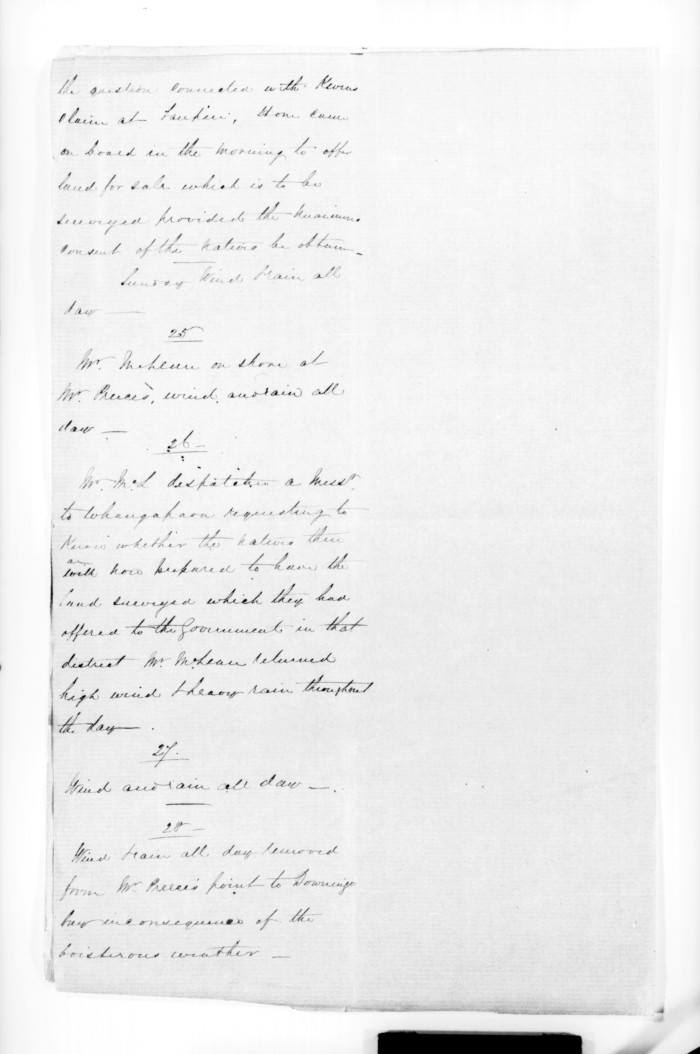 the question connected with
claim at came
on board in the morning to offer
land for sale which is to be
surveyed provided the
consent of the natives be obtain-
Sunday Wind & rain all
day —
25
Mr. McLean on shore at
Mr. Preece's, wind, and rain all
day —
26 —
Mr. McL dispatches a Messr.
to Whangapaoa requesting to
Know whether the natives then
are now prepared to have the
land surveyed which they had
offered to the Government in that
district Mr McLean returned
high wind & heavy rain throughout
the day — .
27.
Wind and rain all day — .
28 —
Wind & rain all day removed
from Mr Preece's point to
bay in consequence of the
boisterous weather —